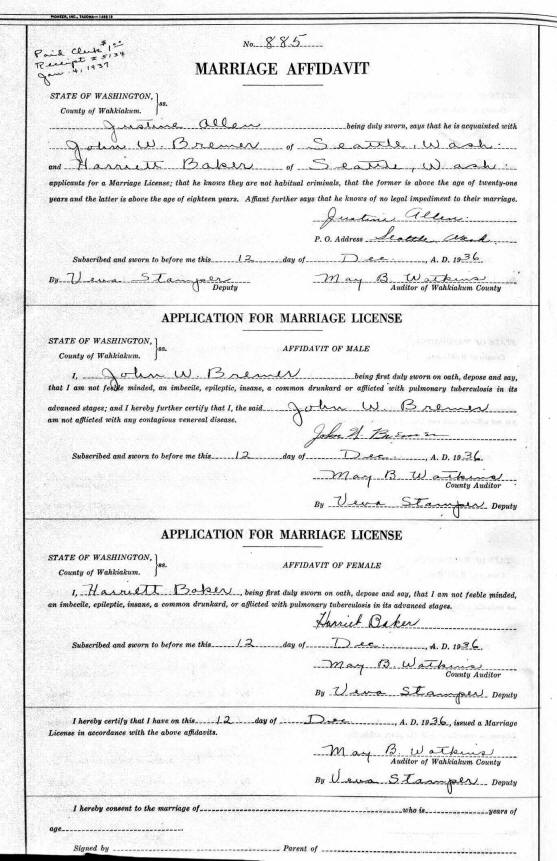 PIONEER, INC., TACOMA—
No. 885
Paid Clerk $1.00
Receipt # 5134
Jan. 4, 1937
MARRIAGE AFFIDAVIT
STATE OF WASHINGTON, } ss.
County of Wahkiakum.
Justine Allen being duly sworn, says that he is acquainted with
John W. Bremer of Seattle, Wash.
and Harriett Baker of Seattle, Wash.
applicants for a Marriage License; that he knows they are not habitual criminals, that the former is above the age of twenty-one
years and the latter is above the age of eighteen years. Affiant further says that he knows of no legal impediment to their marriage.
Justine Allen
P. O. Address Seattle Wash
Subscribed and sworn to before me this 12 day of Dec., A. D. 1936
By Veva Stamper May B. Watkins
Deputy Auditor of Wahkiakum County
APPLICATION FOR MARRIAGE LICENSE
STATE OF WASHINGTON, } ss. AFFIDAVIT OF MALE
County of Wahkiakum.
I, John W. Bremer being first duly sworn on oath, depose and say,
that I am not feeble minded, an imbecile, epileptic, insane, a common drunkard or afflicted with pulmonary tuberculosis in its
advanced stages; and I hereby further certify that I, the said John W. Bremer
am not afflicted with any contagious venereal disease.
John W Bremer
Subscribed and sworn to before me this 12 day of Dec., A. D. 1936.
May B. Watkins
County Auditor
By Veva Stamper Deputy
APPLICATION FOR MARRIAGE LICENSE
STATE OF WASHINGTON, } ss. AFFIDAVIT OF FEMALE
County of Wahkiakum.
I, Harriett Baker, being first duly sworn on oath, depose and say, that I am not feeble minded,
an imbecile, epileptic, insane, a common drunkard, or afflicted with pulmonary tuberculosis in its advanced stages.
Harriet Baker
Subscribed and sworn to before me this 12 day of Dec., A. D. 1936
May B. Watkins
County Auditor
By Veva Stamper Deputy
I hereby certify that I have on this 12 day of Dec., A. D. 1936, issued a Marriage
License in accordance with the above affidavits.
May B. Watkins
Auditor of Wahkiakum County
By Veva Stamper Deputy
I hereby consent to the marriage of who is years of
age
Signed by Parent of